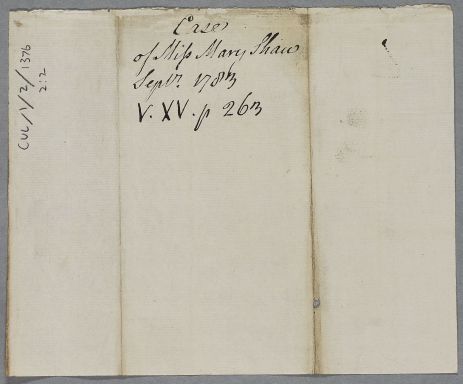 Case
of Miss Mary Shaw
Septr. 1783
V. XV. p 263
CUL/1/2/1376
2.2